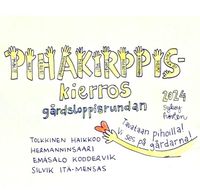 PIHAKIRPPIS-
kierros
gårdsloppisrundan
2024
syksy
hösten
Tavataan pihoilla!
Vi ses på gårdarna!
TOLKKINEN HAIKKOO
HERMANNINSAARI
EMÄSALO KODDERVIK
SILVIK ITÄ-MENSAS